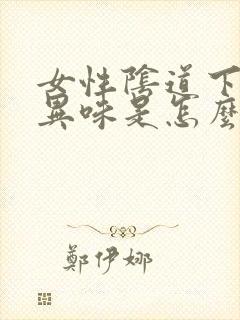 女性陰道下
異味是怎麼
鄭伊娜